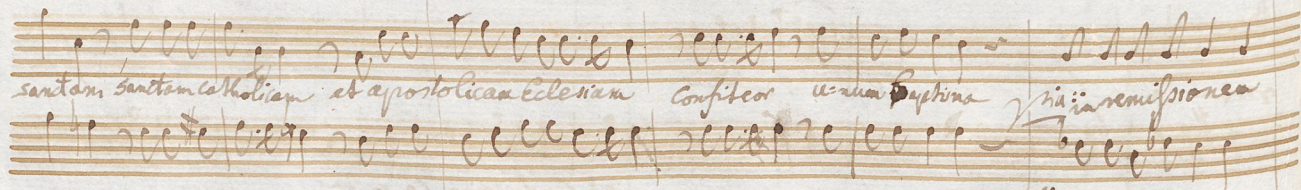 sanctam sanctam catholicam et apostolicam Eclesiam Confiteor u:num Baptisma in remissionem